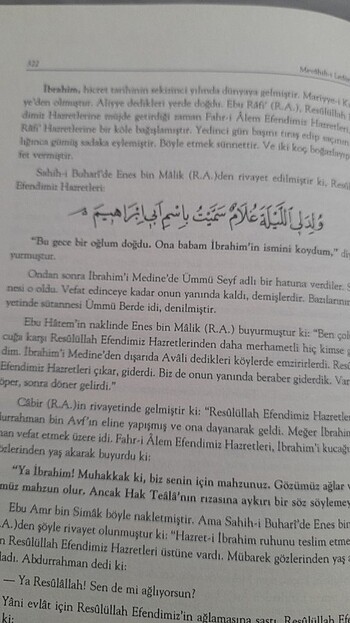 322
Mevâhib-i
İbrahim, hicret tarihinin sekizinci yılında dünyaya gelmiştir. Mariyye-i
ye'den olmuştur. Aliyye dedikleri yerde doğdu. Ebu Râfi' (R.A.), Resûlüllah
dimiz Hazretlerine müjde getirdiği zaman Fahr-i Âlem Efendimiz Hazretleri
Râfi' Hazretlerine bir köle bağışlamıştır. Yedinci gün başını tıraş edip saçının
lığınca gümüş sadaka eylemiştir. Böyle etmek sünnettir. Ve iki koç boğazlayıp
fet vermiştir.
Sahih-i Buharî'de Enes bin Mâlik (R.A.)den rivayet edilmiştir ki,
Efendimiz Hazretleri:
وُلِدَ لِىَ اللَّيْلَةَ غُلَامٌ سَمَّيْتُ بِاسْمِ اَبِى اِبْرَاهِيمَ
"Bu gece bir oğlum doğdu. Ona babam İbrahim'in ismini koydum,"
yurmuştur.
Ondan sonra İbrahim'i Medine'de Ümmü Seyf adlı bir hatuna verdiler.
nesi o oldu. Vefat edinceye kadar onun yanında kaldı, demişlerdir. Bazılarının
yerinde sütannesi Ümmü Berde idi, denilmiştir.
Ebu Hâtem'in naklinde Enes bin Mâlik (R.A.) buyurmuştur ki: "Ben
cuğa karşı Resûlüllah Efendimiz Hazretlerinden daha merhametli hiç kimse
dim. İbrahim'i Medine'den dışarıda Avâli dedikleri köylerde emzirirlerdi.
Efendimiz Hazretleri çıkar, giderdi. Biz de onun yanında beraber giderdik.
öper, sonra döner gelirdi."
Câbir (R.A.)in rivayetinde gelmiştir ki: "Resûlüllah Efendimiz
durrahman bin Avf'ın eline yapışmış ve ona dayanarak geldi. Meğer
man vefat etmek üzere idi. Fahr-i Âlem Efendimiz, İbrahim'i kucağı
özlerinden yaş akarak buyurdu ki:
"Ya İbrahim! Muhakkak ki, biz senin için mahzunuz. Gözümüz ağlar
müz mahzun olur. Ancak Hak Teâlâ'nın rızasına aykırı bir söz söylemey
Ebu Amr bin Simâk böyle nakletmiştir. Ama Sahih-i Buharî'de Enes bin
A.)den şöyle rivayet olunmuştur ki: "Hazret-i İbrahim ruhunu teslim etme
n Resûlüllah Efendimiz Hazretleri üstüne vardı. Mübarek gözlerinden yaş
ladı. Abdurrahman dedi ki:
— Ya Resûlâllah! Sen de mi ağlıyorsun?
Yâni evlât için Resûlüllah Efendimiz'in ağlamasına şaştı. Resûlüllah
ki: